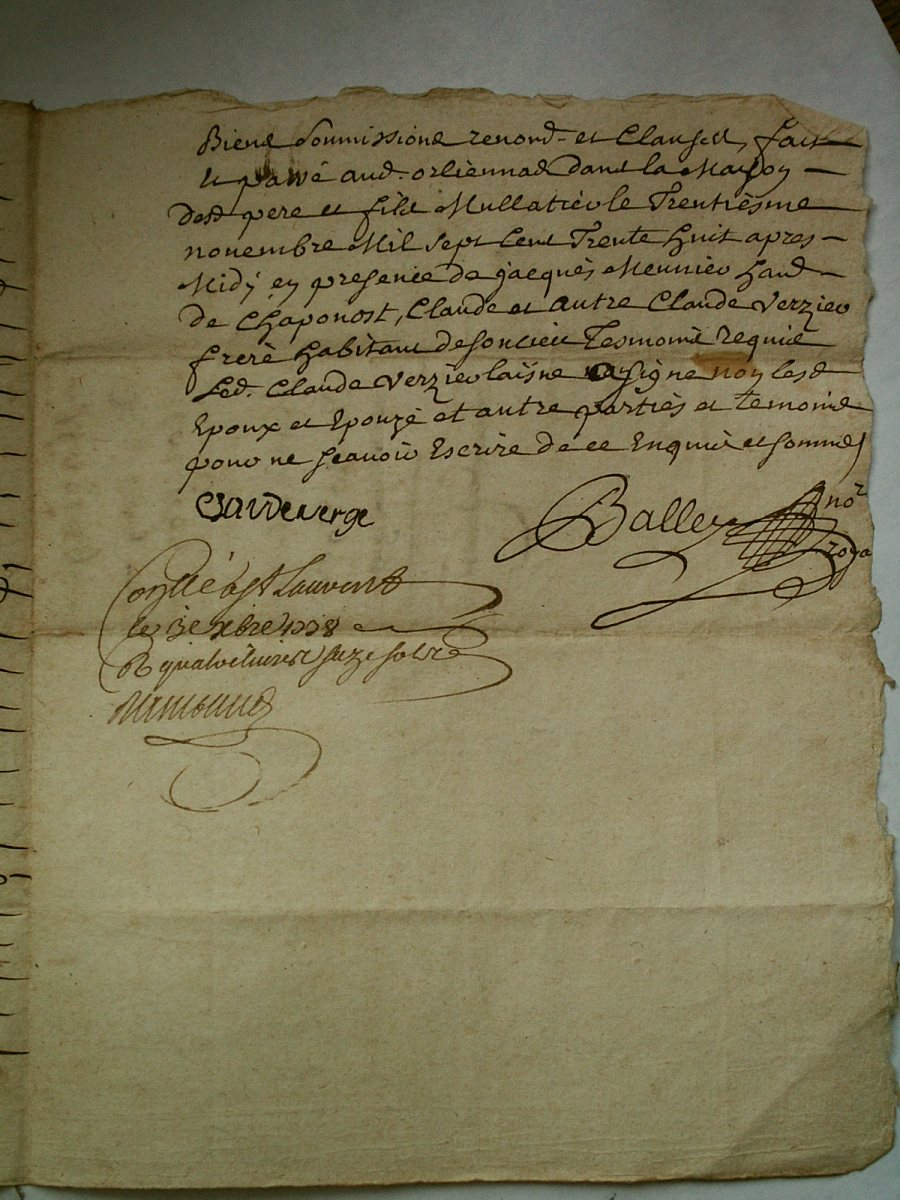 Biens Soumissions renond. et Clauses, fait
et passé aud. orliennas dans la Maison
desd pere et fils Mullatier le Trentiesme
novembre Mil sept Cent Trente huit apres
Midÿ en presence de jacques Meunier hand
de Chaponost, Claude et autre Claude Verzieu
freré habitant de soucieu Tesmoins requis
Led. Claude Verzieu laisne a signe non lesd
Epoux et Epouzé et autre parties et temoins
pour ne scavoir Escrire de ce Enquis et sommes
Claude verge
Balley nore
roya
Conllé a St Laurent
le 3e xbre 1738
R quatre livres seze sols